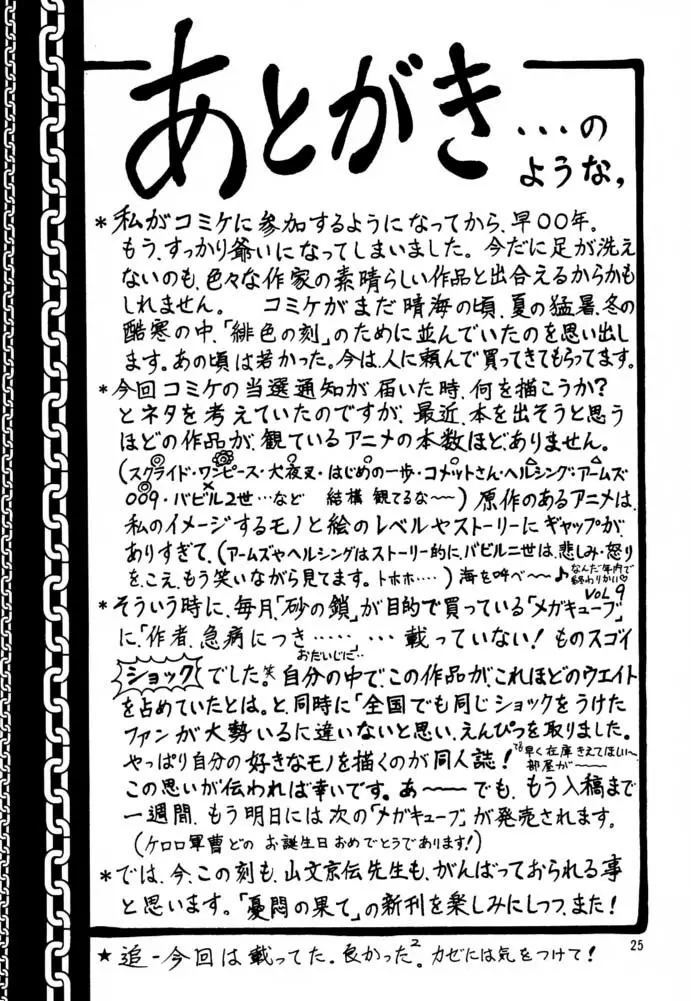 あとがき
…の
ような。
*私がコミケに参加するようになってから、早〇〇年。
もう、すっかり爺いになってしまいました。今だに足が洗え
ないのも、色々な作家の素晴らしい作品と出合えるからかも
しれません。 コミケがまだ晴海の頃、夏の猛暑、冬の
酷寒の中、「緋色の刻」のために並んでいたのを思い出し
ます。あの頃は若かった。今は、人に頼んで買ってきてもらってます。
*今回コミケの当選通知が届いた時、何を描こうか?
とネタを考えていたのですが、最近、本を出そうと思う
ほどの作品が、観ているアニメの本数ほど、ありません。
(スクライド・ワンピース・犬夜叉・はじめの一歩・コメットさん・ヘルシング・アームズ
009・バビル2世…など 結構 観てるな〜〜)原作のあるアニメは、
私のイメージするモノと絵のレベルやストーリーにギャップが
ありすぎて、(アームズやヘルシングはストーリー的に、バビル二世は、悲しみ・怒り
を、こえ、もう笑いながら見てます。トホホ‥‥)海を呼べ〜〜♪
なんだ年内で
終わりかい♡
*そういう時に、毎月「砂の鎖」が目的で買っている「メガキューブ」
VOL9
に、「作者、急病につき……」…載っていない!ものスゴイ
おだいじに‥
ショックでした。笑 自分の中で、この作品が、これほどのウエイト
を占めていたとは。と、同時に「全国でも同じショックをうけた
ファンが大勢いるに違いないと思い、えんぴつを取りました。
やっぱり自分の好きなモノを描くのが同人誌!
でも早く在庫きえてほしい〜
部屋が〜〜
この思いが伝われば幸いです。あ〜〜でも、もう入稿まで
一週間、もう明日には次の「メガキューブ」が発売されます。
(ケロロ軍曹どの お誕生日おめでとうであります!)
*では、今、この刻も、山文京伝先生も、がんばっておられる事
と思います。「憂悶の果て」の新刊を楽しみにしつつ、また!
25
★追-今回は載ってた。良かった²。カゼには気をつけて!